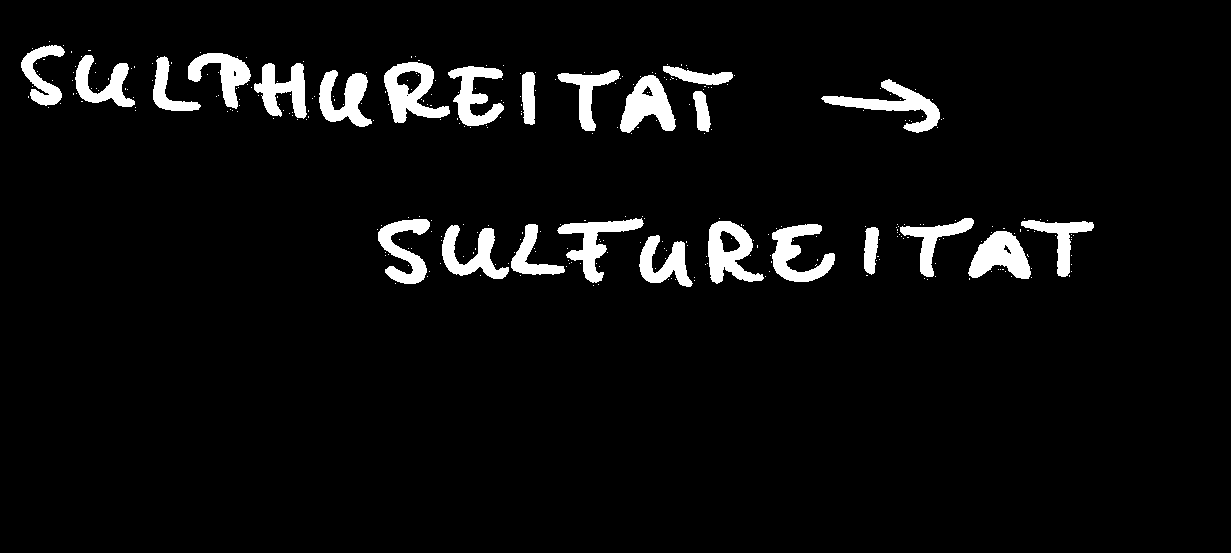 SULPHUREITAT →
SULFUREITAT